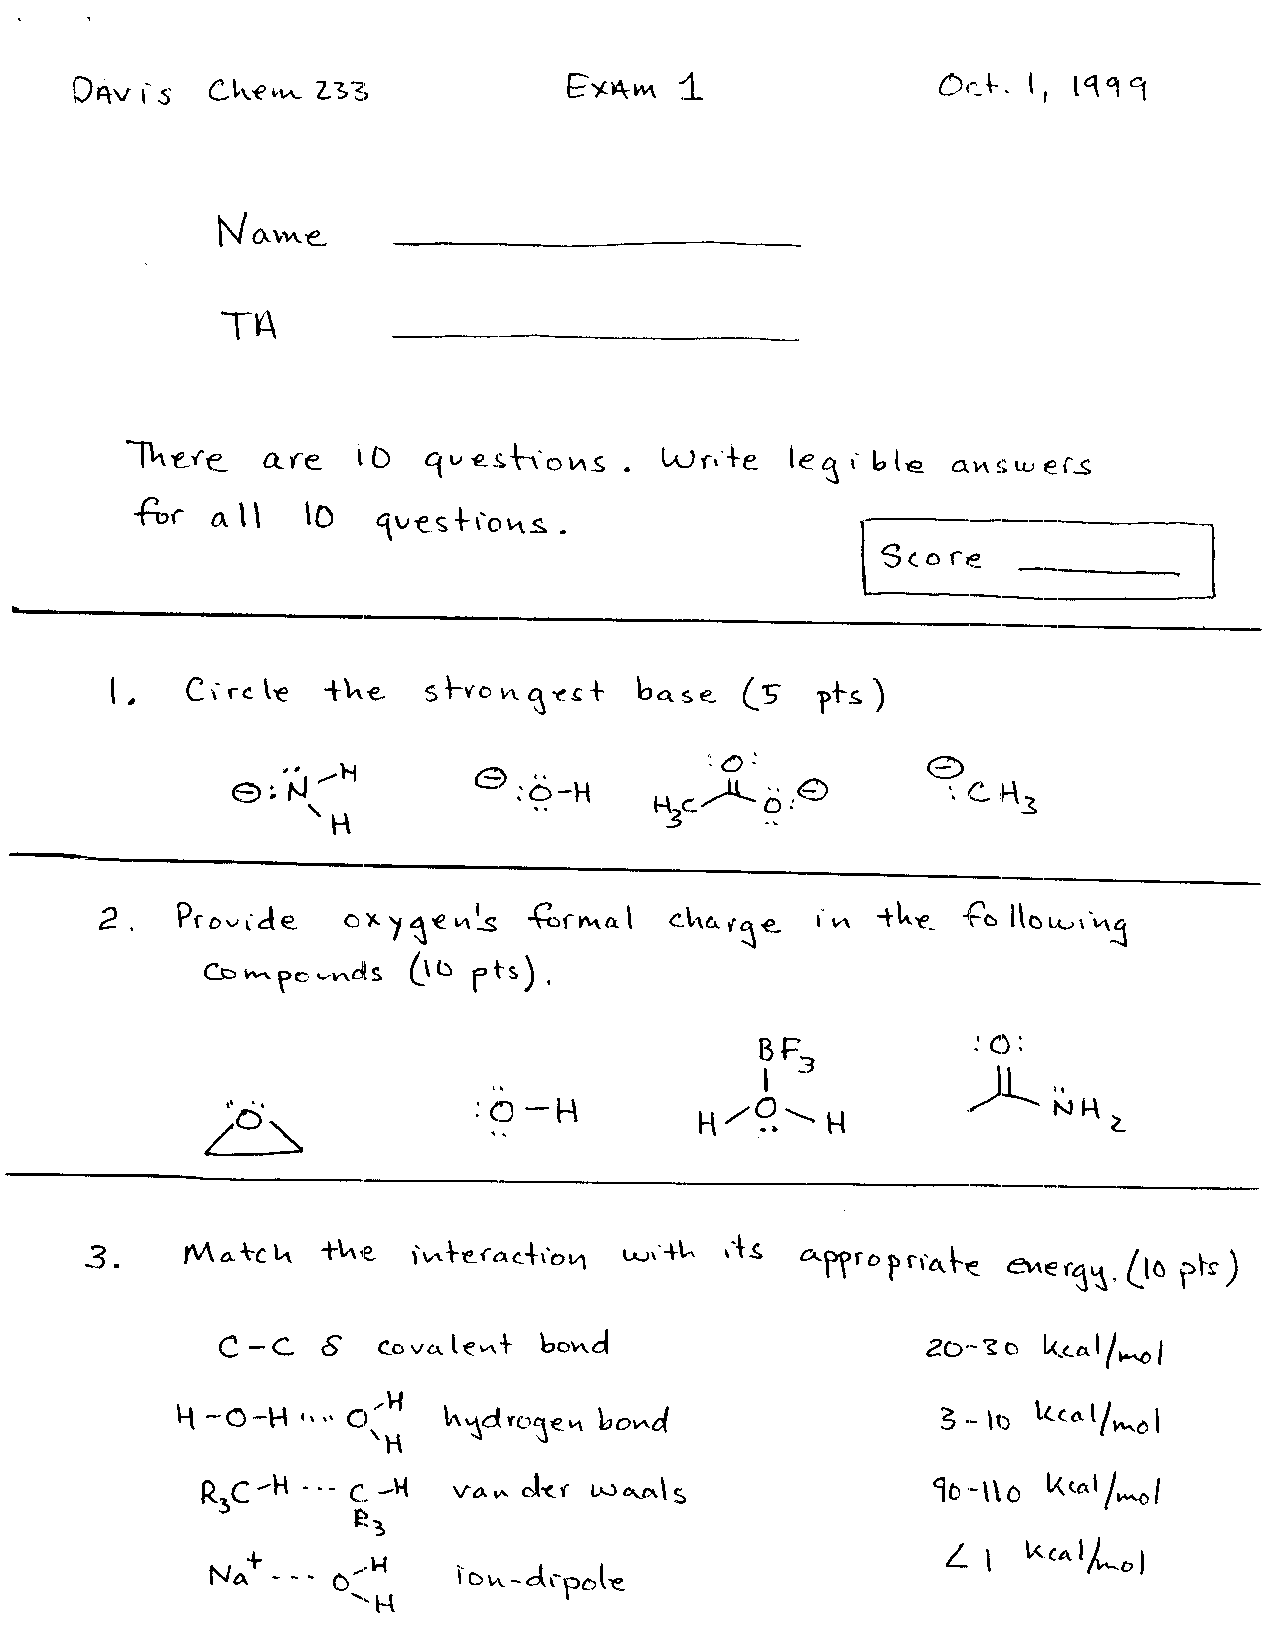 DAVIS Chem 233 EXAM 1 Oct. 1, 1999
Name
TA
There are 10 questions. Write legible answers
for all 10 questions.
Score
1. Circle the strongest base (5 pts)
⊖:N̈ H H ⊖:Ö-H H₃C :O: Ö: ⊖ ⊖:CH₃
2. Provide oxygen's formal charge in the following
compounds (10 pts).
Ö :Ö-H BF₃ H O H :O: N̈H₂
3. Match the interaction with its appropriate energy. (10 pts)
C-C δ covalent bond 20-30 kcal/mol
H-O-H····O H H hydrogen bond 3-10 kcal/mol
R₃C-H---C-H R₃ van der waals 90-110 kcal/mol
Na⁺---O H H ion-dipole <1 kcal/mol